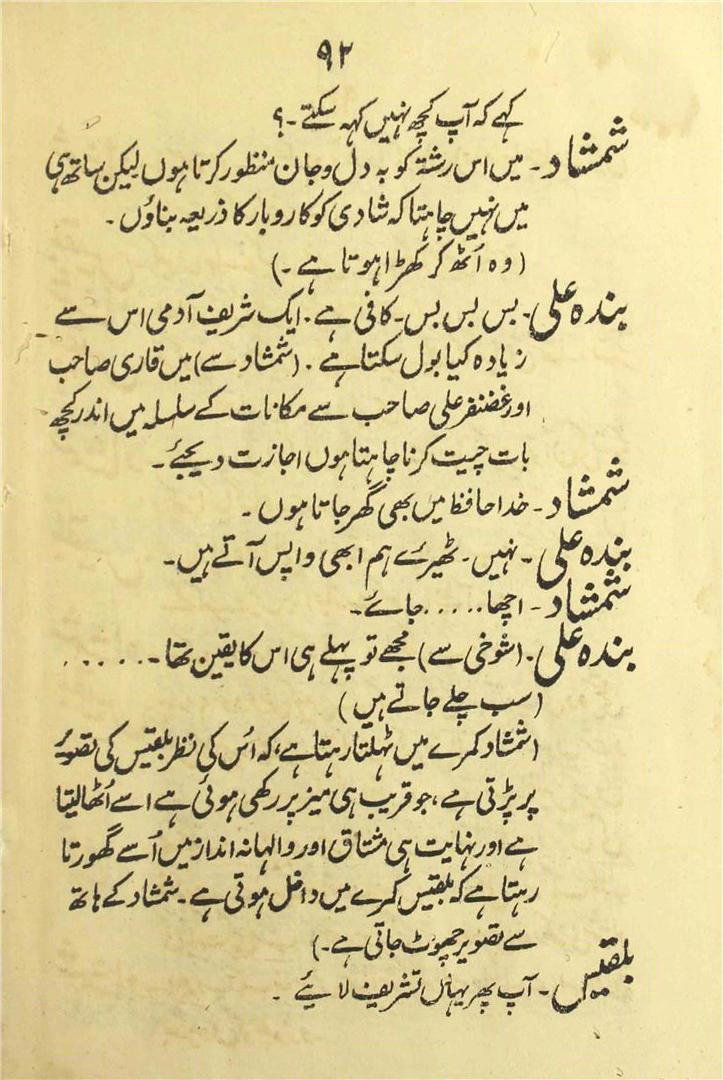 ۹۲
کہے کہ آپ کچھ نہیں کہہ سکتے ۔؟
شمشاد۔ میں اس رشتہ کو بہ دل و جان منظور کرتا ہوں لیکن ساتھ ہی
میں نہیں چاہتا کہ شادی کو کاروبار کا ذریعہ بناؤں۔
(وہ اُٹھ کر کھڑا ہوتا ہے ۔)
بندہ علی۔ بس بس بس۔ کافی ہے۔ ایک شریف آدمی اس سے
زیادہ کیا بول سکتا ہے ۔ (شمشاد سے) میں قاری صاحب
اور غضنفر علی صاحب سے مکانات کے سلسلہ میں اندر کچھ
بات چیت کرنا چاہتا ہوں اجازت دیجئے۔
شمشاد۔ خدا حافظ میں بھی گھر جاتا ہوں ۔
بندہ علی۔ نہیں۔ ٹھیرئے ہم ابھی واپس آتے ہیں۔
شمشاد۔ اچھا ..... جائے۔
بندہ علی۔ (شوخی سے) مجھے تو پہلے ہی اس کا یقین تھا۔ .....
(سب چلے جاتے ہیں)
(شمشاد کمرے میں ٹہلتا رہتا ہے، کہ اُس کی نظر بلقیس کی تصویر
پر پڑتی ہے، جو قریب ہی میز پر رکھی ہوئی ہے اسے اُٹھا لیتا
ہے اور نہایت ہی مشتاق اور والہانہ انداز میں اُسے گھورتا
رہتا ہے کہ بلقیس کمرے میں داخل ہوتی ہے۔ شمشاد کے ہاتھ
سے تصویر چھوٹ جاتی ہے۔)
بلقیس۔ آپ پھر یہاں تشریف لائیے ۔